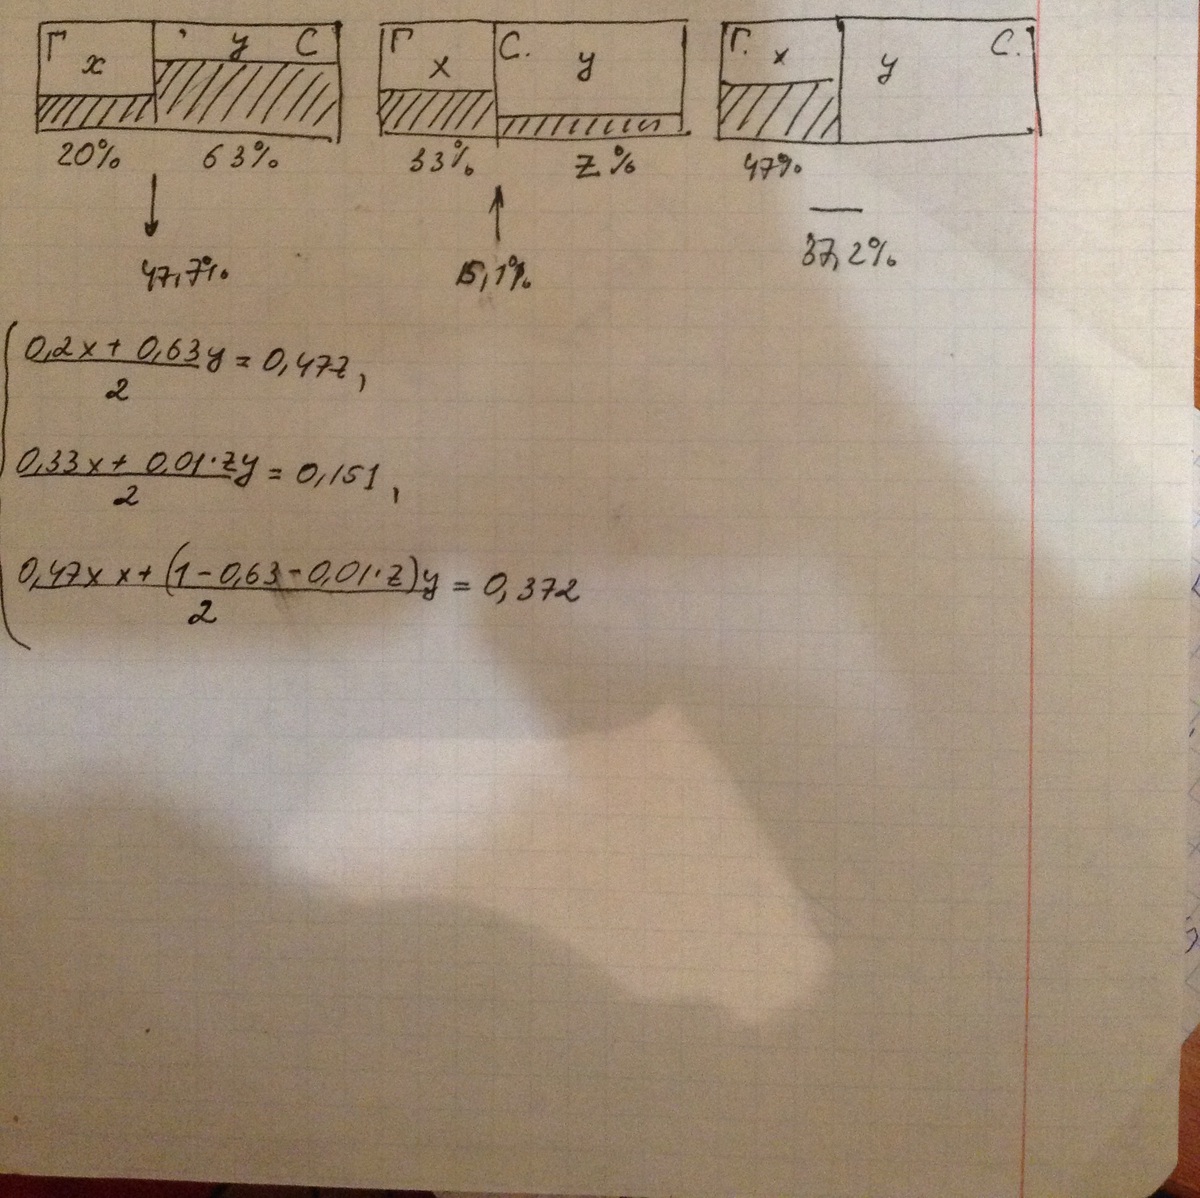 Г x y С Г x С. y Г. x y С.
20% 63% 33% z% 47%
47,7% 15,1% 37,2%
0,2x + 0,63y
2
= 0,477,
0,33x + 0,01·zy
2
= 0,151,
0,47x x + (1 - 0,63 - 0,01·z)y
2
= 0,372